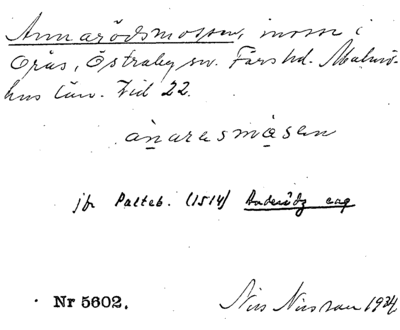 Annarödsmossen, mosse i
Öräs, Östraby sn. Färs hd. Malmö-
hus län. Vid 22.
ànarasmåsen
jfr Palteb. (1514)
Nr 5602.
Nils Nilsson 1934